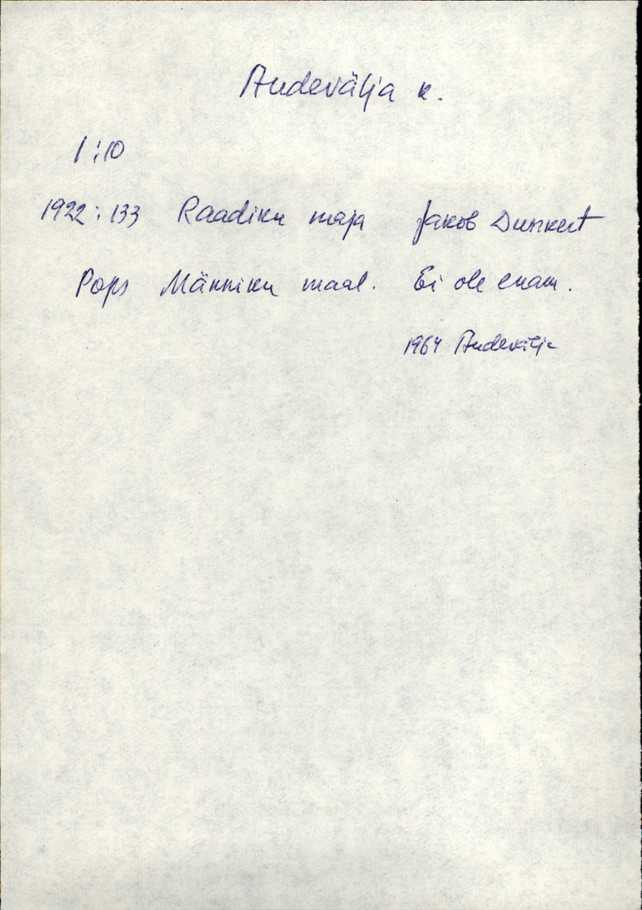 Audevälja k.
1:10
1922:133 Raadiku maja Jakob Dunkert
Pops Männiku maal. Ei ole enam.
1964 Audevälja